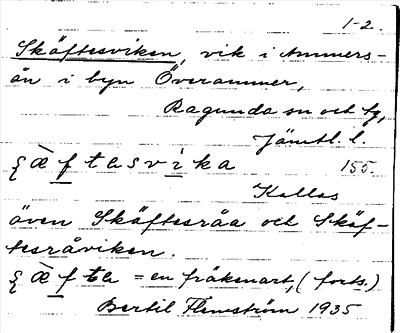 1-2.
Skäftesviken, vik i Ammers-
ån i byn Överammer,
Ragunda sn och tg,
Jämtl. l.
ʂæ̀ftasvika 155.
Kallas
även Skäftesråa och Skäf-
tesråviken.
ʂæ̀fta = en fräkenart, (forts.)
Bertil Flemström 1935